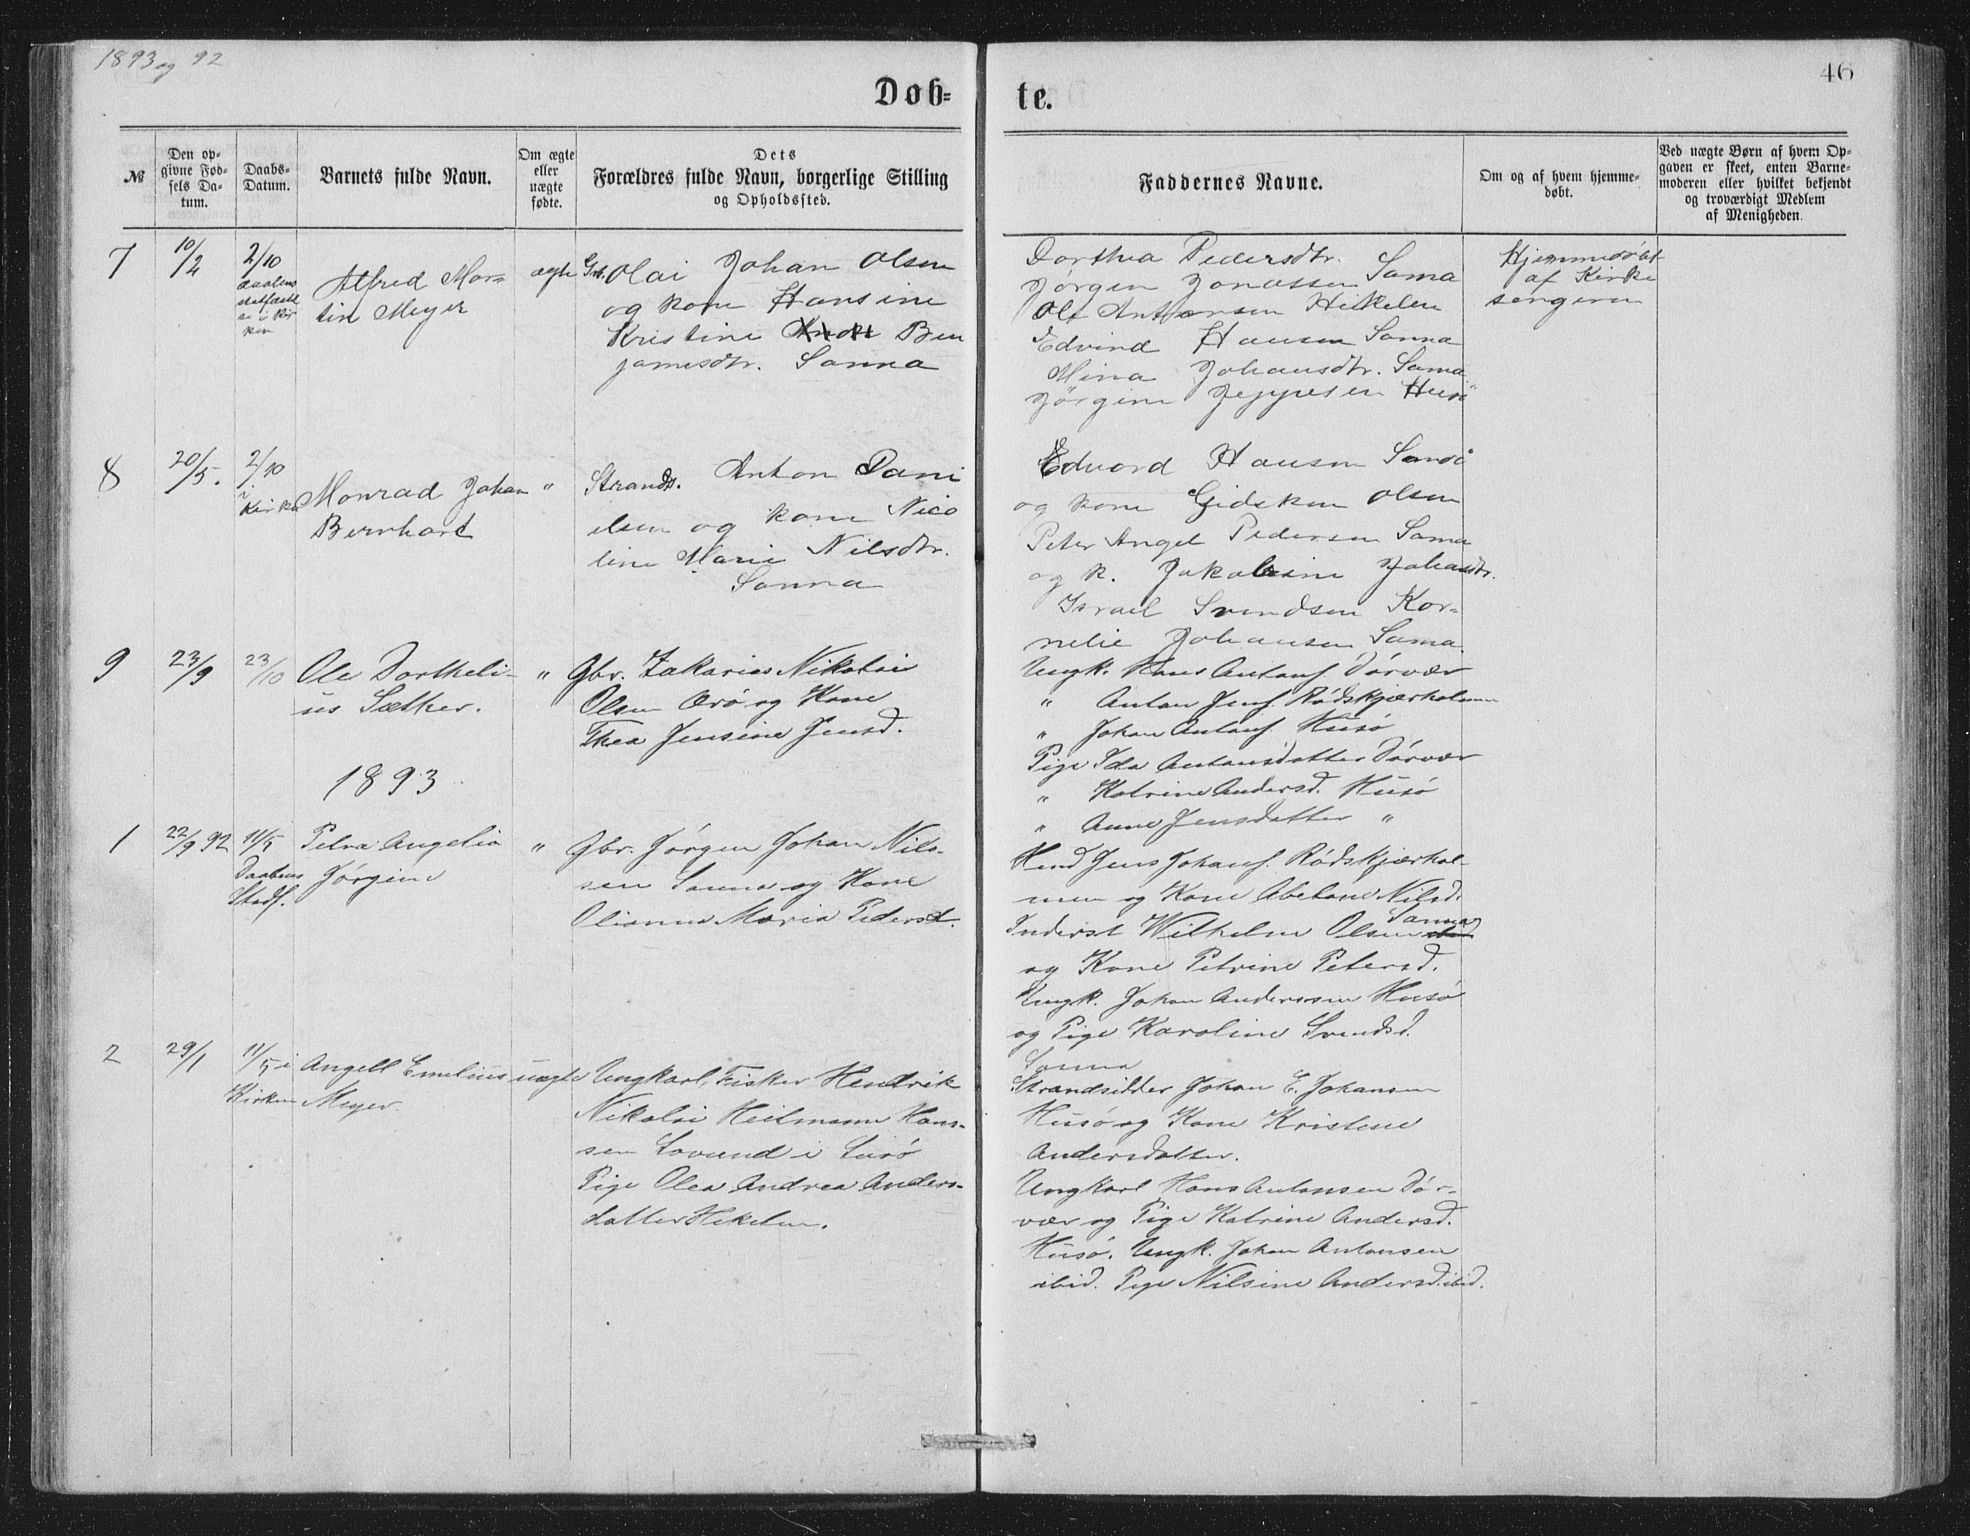 1893 og 92
46
Døb=
te.
№
Den op=
givne Fød=
sels Da=
tum.
Daabs=
Datum.
Barnets fulde Navn.
Om ægte
eller
uægte
fødte.
Dets
Forældres fulde Navn, borgerlige Stilling
og Opholdssted.
Faddernes Navne.
Om og af hvem hjemme=
døbt.
Ved uægte Børn af hvem Op=
gaven er skeet, enten Barne=
moderen eller hvilket bekjendt
og troværdigt Medlem
af Menigheden.
7
10/2
2/10
daabens
stadfæstel
se i kir
ken
Alfred Mor=
tin Meyer
ægte
Gb. Olai Johan Olsen
og kone Hansine
Kristine Ben
jamisdtr. Sanna
Dorthea Pedersdtr.
Jørgen Jonassen Sanna
Ole Antonsen Hikelen
Edvind Hansen Sanna
Mina Johansdtr. Sanna
Jørgine Jeppesen Husö
Hjemmedöbt
af Kirke
sangeren
8
20/5.
2/10
i
Kirke
Monrad Johan
Bernhart
"
Strands. Anton Dani
elsen og kone Nico
line Marie Nilsdtr.
Sanna
Edvard Hansen Sanna
og kone Gidsken Olsen
Peter Angel Pedersen Sanna
og k. Jakobine Johansdtr.
Israel Svendsen Kor=
nelie Johansen Sanna
9
23/9
23/10
Ole Dortheli-
us Sæther.
"
Gbr. Zakarias Nikolai
Olsen Ørö og Kone
Thea Jensine Jensd.
Ungk. Hans Antonsf. Dörvær
" Anton Jensf. Rödskjærholmen
" Johan Antonsf. Husö
Pige Ida Antonsdatter Dörvær
" Katrine Andersd. Husö
" Anne Jensdatter "
1893
1
22/9 92
11/5
Daabens
Stadf.
Petra Angelia
Jørgine
"
Gbr. Jörgen Johan Nils-
sen Sanna og Kone
Olianna Maria Pedersd.
Hmd Jens Johansf. Rödskjærhol-
men og Kone Abelone Nilsd.
Inderst Wilhelm Olsen Sanna
og Kone Petrine Petersd.
Ungk. Johan Anderssen Husö
og Pige Karoline Svendsd.
Sanna
2
29/1
11/5 i
Kirken
Angell Emelius
Meyer.
uægte
Ungkarl, Fisker Hendrik
Nikolai Heilmann Hans-
sen Lovund i Lurö
Pige Olea Andrea Anders-
datter Hekelen.
Strandsidder Johan E. Johansen
Husö og Kone Kristine
Andersdatter.
Ungkarl Hans Antonsen Dör-
vær og Pige Katrine Andersd.
Husö. Ungk. Johan Antonsen
ibid. Pige Nilsine Andersd. ibid.